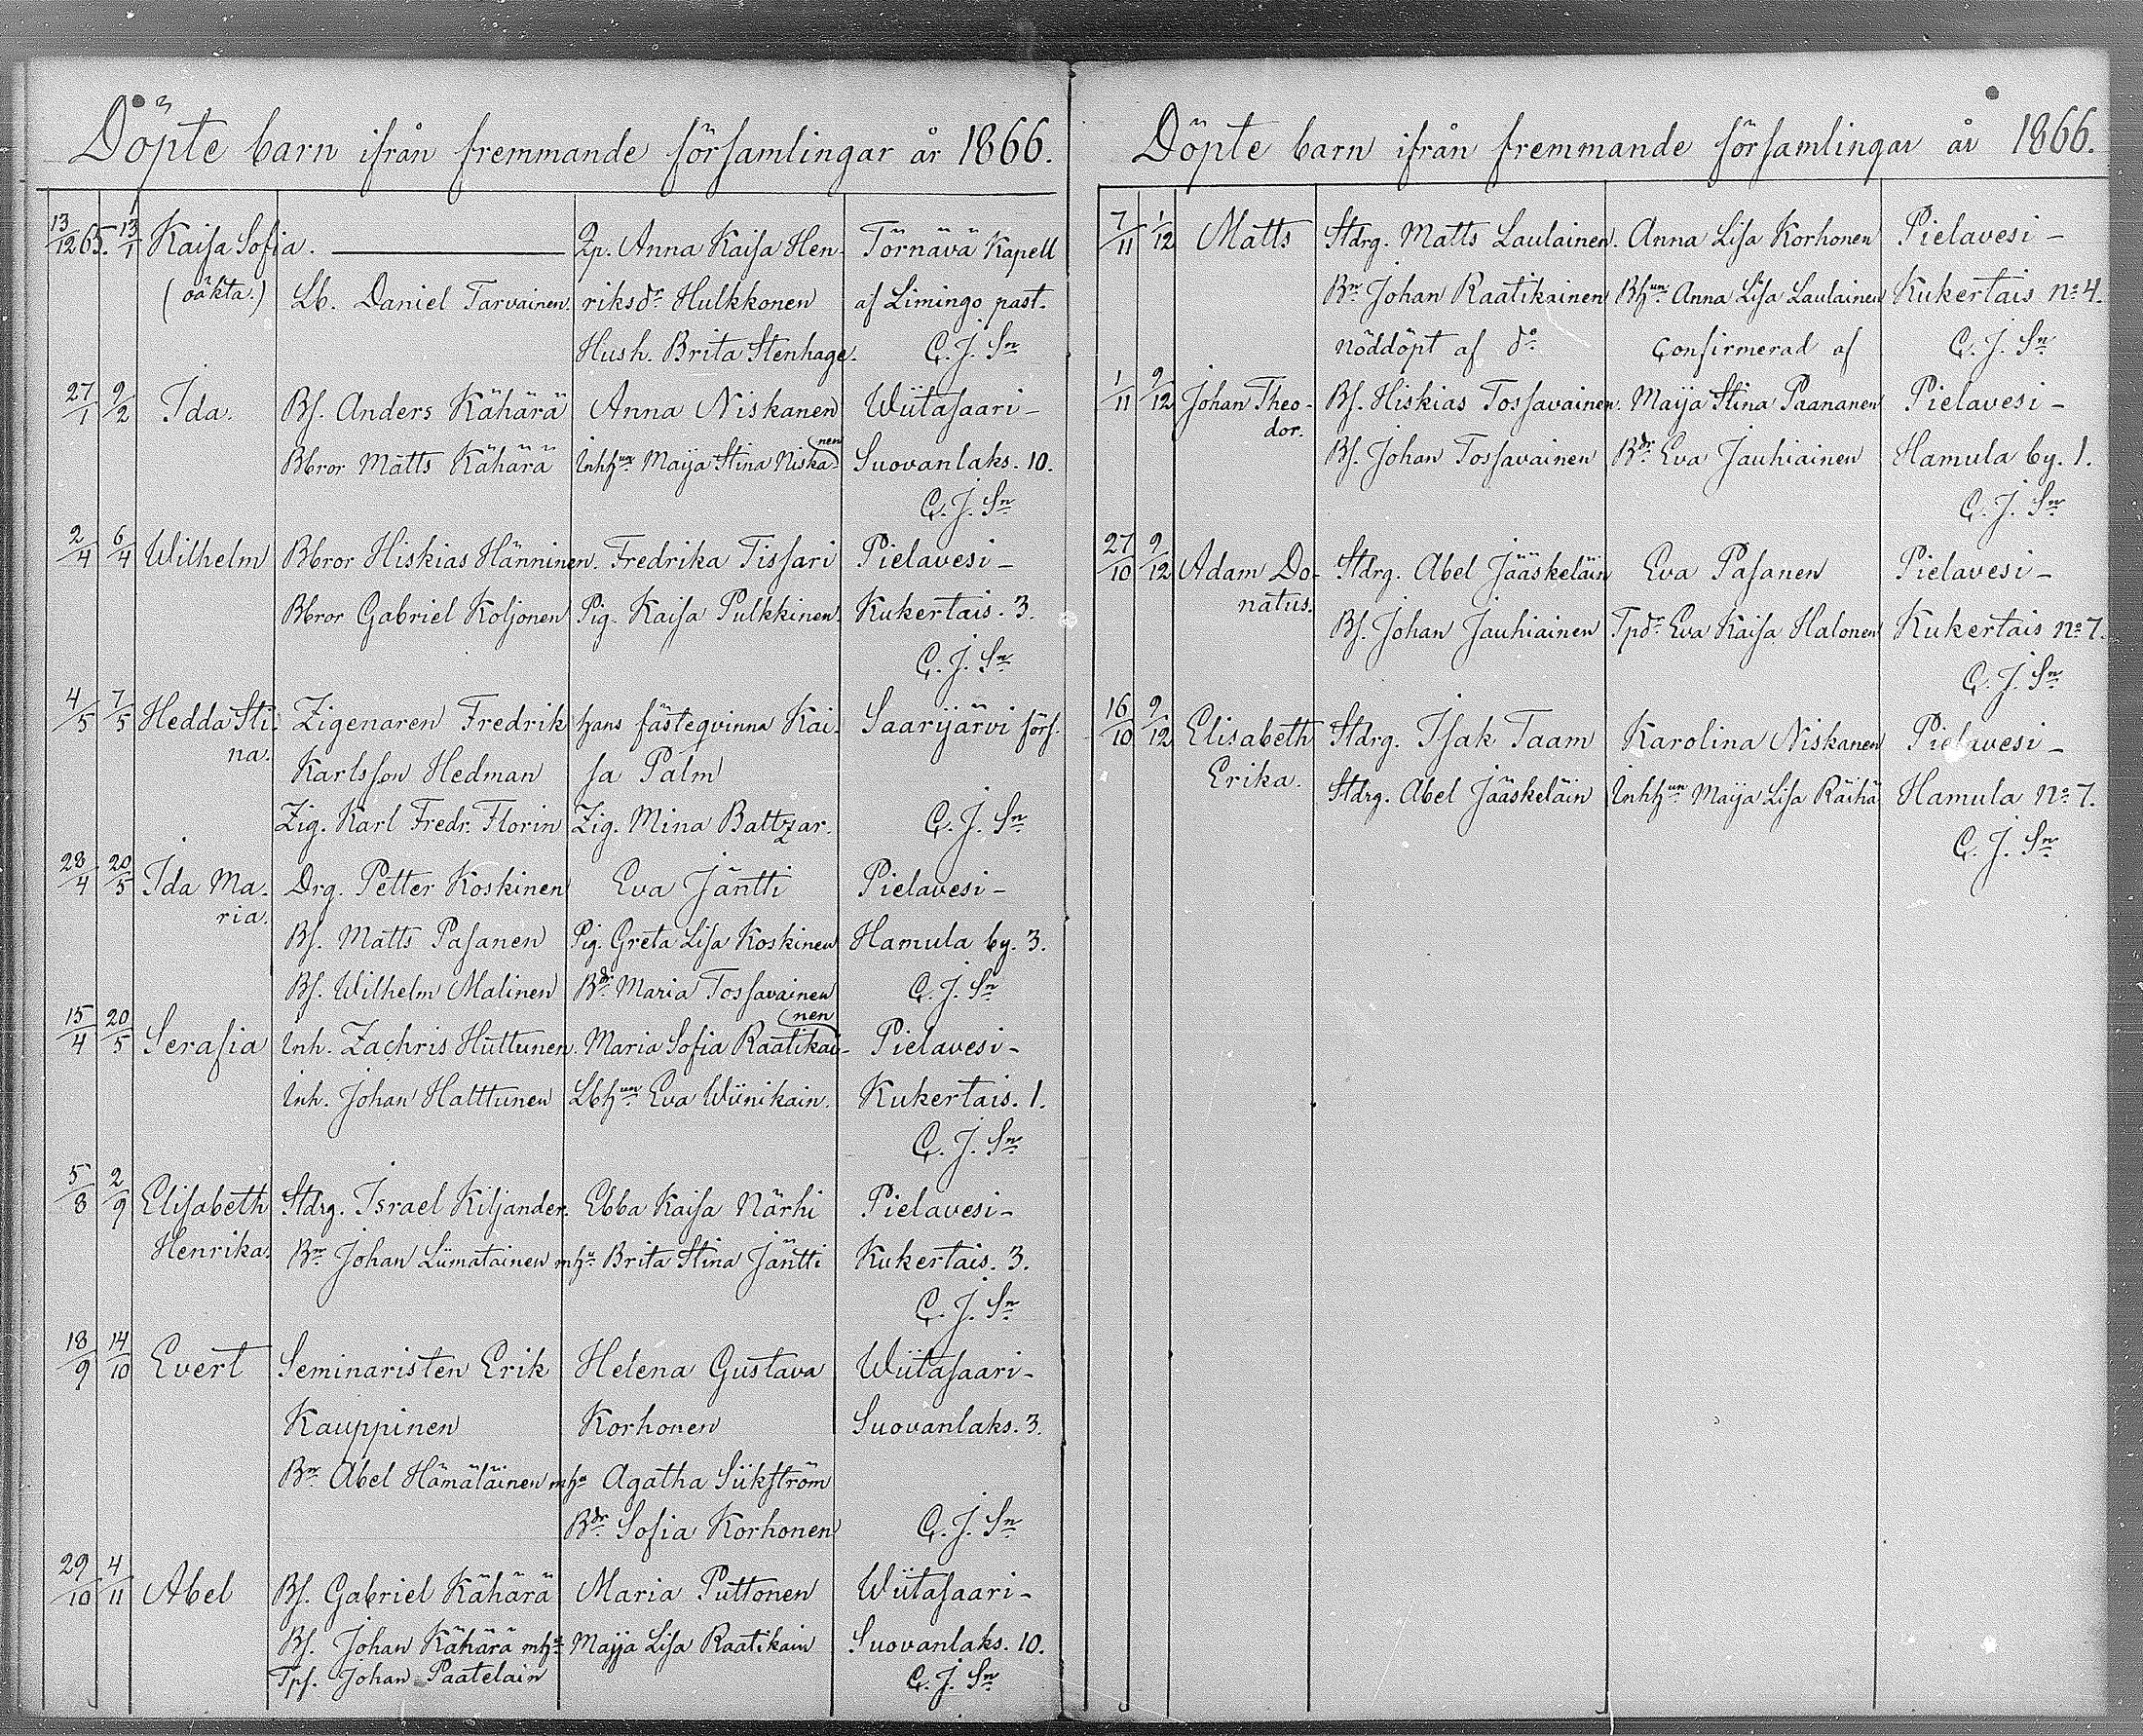 Döpte barn ifrån fremmande församlingar år 1866.
13/12 65. 13/1 Kaisa Sofia. Qp. Anna Kaisa Hen- Törnävä Kapell
(oäkta.) Lb. Daniel Tarvainen. riksdr Hulkkonen af Limingo past.
Hush. Brita Stenhage. C. J. Sn
27/1 9/2 Ida. Bs. Anders Kähärä Anna Niskanen Wiitasaari-
Bbror Matts Kähärä Inhhun Maija Stina Niskanen Suovanlaks. 10.
C. J. Sn
2/4 6/4 Wilhelm Bbror Hiskias Hänninen. Fredrika Tissari Pielavesi-
Bbror Gabriel Koljonen Pig. Kaisa Pulkkinen. Kukertais. 3.
C. J. Sn
4/5 7/5 Hedda Sti- Zigenaren Fredrik hans fästeqvinna Kai- Saarijärvi förs.
na. Karlsson Hedman sa Palm
Zig. Karl Fredr. Florin Zig. Mina Baltzar. C. J. Sn
28/4 20/5 Ida Ma- Drg. Petter Koskinen Eva Jäntti Pielavesi-
ria. Bs. Matts Pasanen Pig. Greta Lisa Koskinen Hamula by. 3.
Bs. Wilhelm Malinen Bdr Maria Tossavainen C. J. Sn
15/4 20/5 Serafia Inh. Zachris Huttunen. Maria Sofia Raatikainen Pielavesi-
Inh. Johan Halttunen Lbhun Eva Wiinikain. Kukertais. 1.
C. J. Sn
5/8 2/9 Elisabeth Stdrg. Israel Kiljander. Ebba Kaisa Närhi Pielavesi-
Henrika. Bn Johan Liimatainen mhu Brita Stina Jäntti Kukertais. 3.
C. J. Sn
18/9 14/10 Evert Seminaristen Erik Helena Gustava Wiitasaari-
Kauppinen Korhonen Suovanlaks. 3.
Bn Abel Hämäläinen mhu Agatha Siikström
Bdr Sofia Korhonen C. J. Sn
29/10 4/11 Abel Bs. Gabriel Kähärä Maria Puttonen Wiitasaari-
Bs. Johan Kähärä mhu Maija Lisa Raatikain Suovanlaks. 10.
Tps. Johan Paatelain C. J. Sn
Döpte barn ifrån fremmande församlingar år 1866.
7/11 1/12 Matts Stdrg. Matts Laulainen. Anna Lisa Korhonen Pielavesi-
Bn Johan Raatikainen Bhun Anna Lisa Laulainen Kukertais No 4.
nöddöpt af do Confirmerad af C. J. Sn
1/11 9/12 Johan Theo- Bs. Hiskias Tossavainen. Maija Stina Paananen Pielavesi-
dor. Bs. Johan Tossavainen Bdr Eva Jauhiainen Hamula by. 1.
C. J. Sn
27/10 9/12 Adam Do- Stdrg. Abel Jääskeläin Eva Pasanen Pielavesi-
natus. Bs. Johan Jauhiainen Tpdr Eva Kaisa Halonen Kukertais No 7.
C. J. Sn
16/10 9/12 Elisabeth Stdrg. Isak Taam Karolina Niskanen Pielavesi-
Erika. Stdrg. Abel Jääskeläin Inhhun Maija Lisa Räihä Hamula No 7.
C. J. Sn